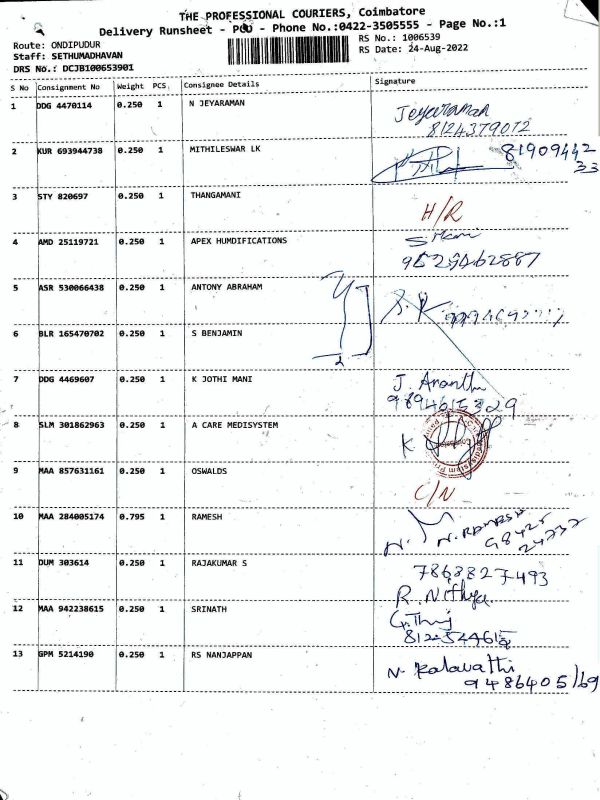 THE PROFESSIONAL COURIERS, Coimbatore
Delivery Runsheet - POD - Phone No.:0422-3505555 - Page No.:1
Route: ONDIPUDUR
RS No.: 1006539
Staff: SETHUMADHAVAN
RS Date: 24-Aug-2022
DRS No.: DCJB100653901
S No Consignment No Weight PCS Consignee Details Signature
1 DDG 4470114 0.250 1 N JEYARAMAN Jeyaraman
8124379072
2 KUR 693944738 0.250 1 MITHILESWAR LK 81909442
33
3 STY 820697 0.250 1 THANGAMANI H/R
4 AMD 25119721 0.250 1 APEX HUMDIFICATIONS
5 ASR 530066438 0.250 1 ANTONY ABRAHAM
6 BLR 165470702 0.250 1 S BENJAMIN
2
7 DDG 4469607 0.250 1 K JOTHI MANI J. Ananthi
9894615329
8 SLM 301862963 0.250 1 A CARE MEDISYSTEM K
9 MAA 857631161 0.250 1 OSWALDS C/N
10 MAA 284005174 0.795 1 RAMESH N. RAMESH
98425
24232
11 DUM 303614 0.250 1 RAJAKUMAR S 7868827493
R. Nithya
12 MAA 942238615 0.250 1 SRINATH
13 GPM 5214190 0.250 1 RS NANJAPPAN N. Kalavathi
9486405169